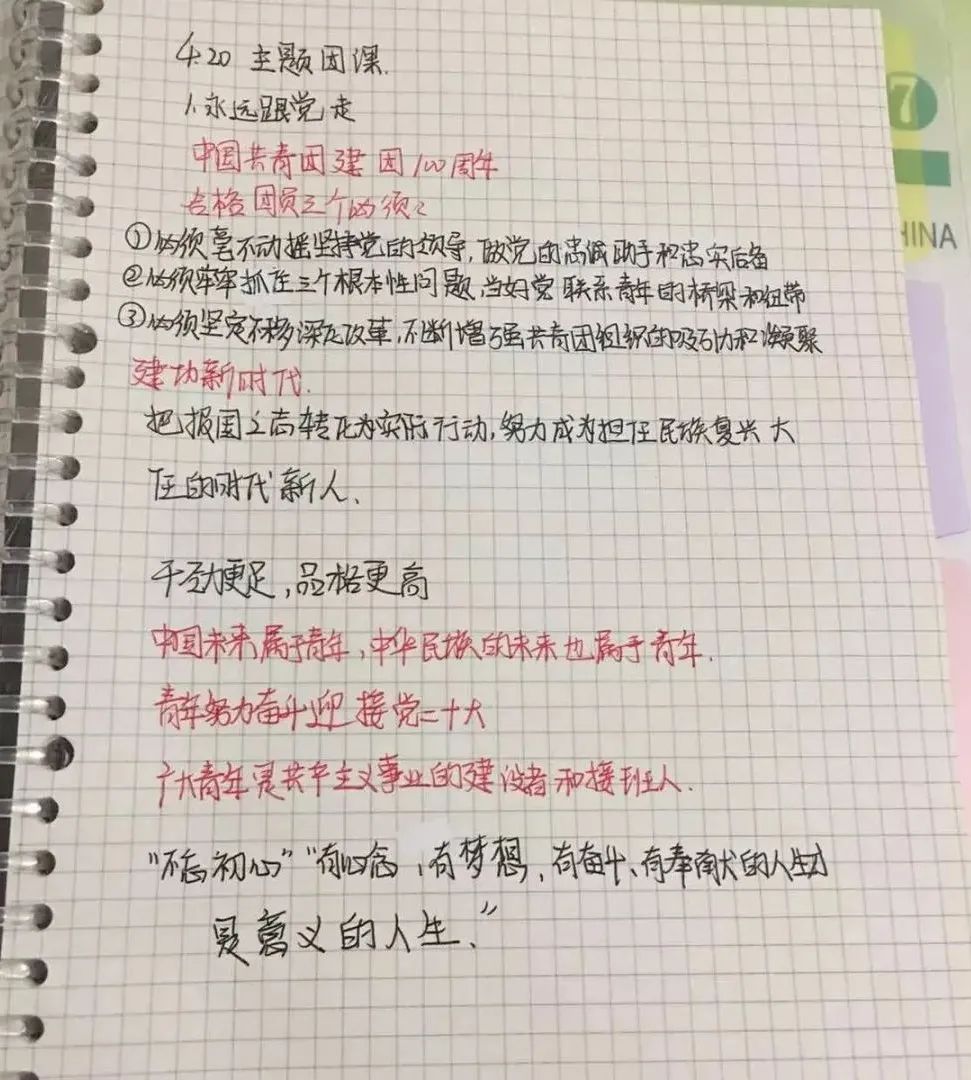 4.20 主题团课.
1.永远跟党走
中国共青团建团100周年
合格团员三个必须:
①必须毫不动摇坚持党的领导,做党的忠诚助手和忠实后备
②必须牢牢抓住三个根本性问题,当好党联系青年的桥梁和纽带
③必须坚定不移深化改革,不断增强共青团组织的吸引力和凝聚
建功新时代.
把报国之志转化为实际行动,努力成为担任民族复兴大
任的时代新人.
干劲更足,品格更高
中国未来属于青年,中华民族的未来也属于青年.
青年努力奋斗迎接党二十大
广大青年是共产主义事业的建设者和接班人.
"不忘初心""有信念,有梦想,有奋斗、有奉献的人生才
是意义的人生."
7
HINA